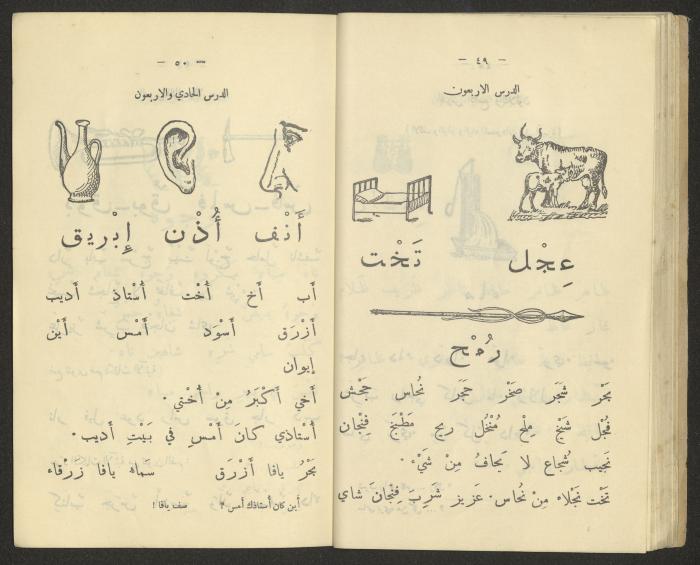 – ٤٩ –
الدرس الاربعون
عِجْل تَخْت
رُمْح
بَحْر شَجَر صَخْر حَجَر نُحاس جَحْش
فُجْل شَيْخ مِلْح مُنْخُل ريح مَطْبَخ فِنْجان
نَجيب شُجاع لا يَخافُ مِنْ شَيْءٍ.
تَخْت نَجْلاء مِنْ نُحاس. عَزيز شَرِبَ فِنْجانَ شاي
– ٥٠ –
الدرس الحادي والاربعون
أَنْف أُذْن إِبْريق
أَب أَخ أُخْت أُسْتاذ أَديب
أَزْرَق أَسْوَد أَمْس أَيْن
إيوان
أَخي أَكْبَرُ مِنْ أُخْتي.
أُسْتاذي كانَ أَمْسِ في بَيْتِ أَديب.
بَحْرُ يافا أَزْرَق سماءُ يافا زَرْقاء
أين كان أستاذك أمس ؟ صف يافا !